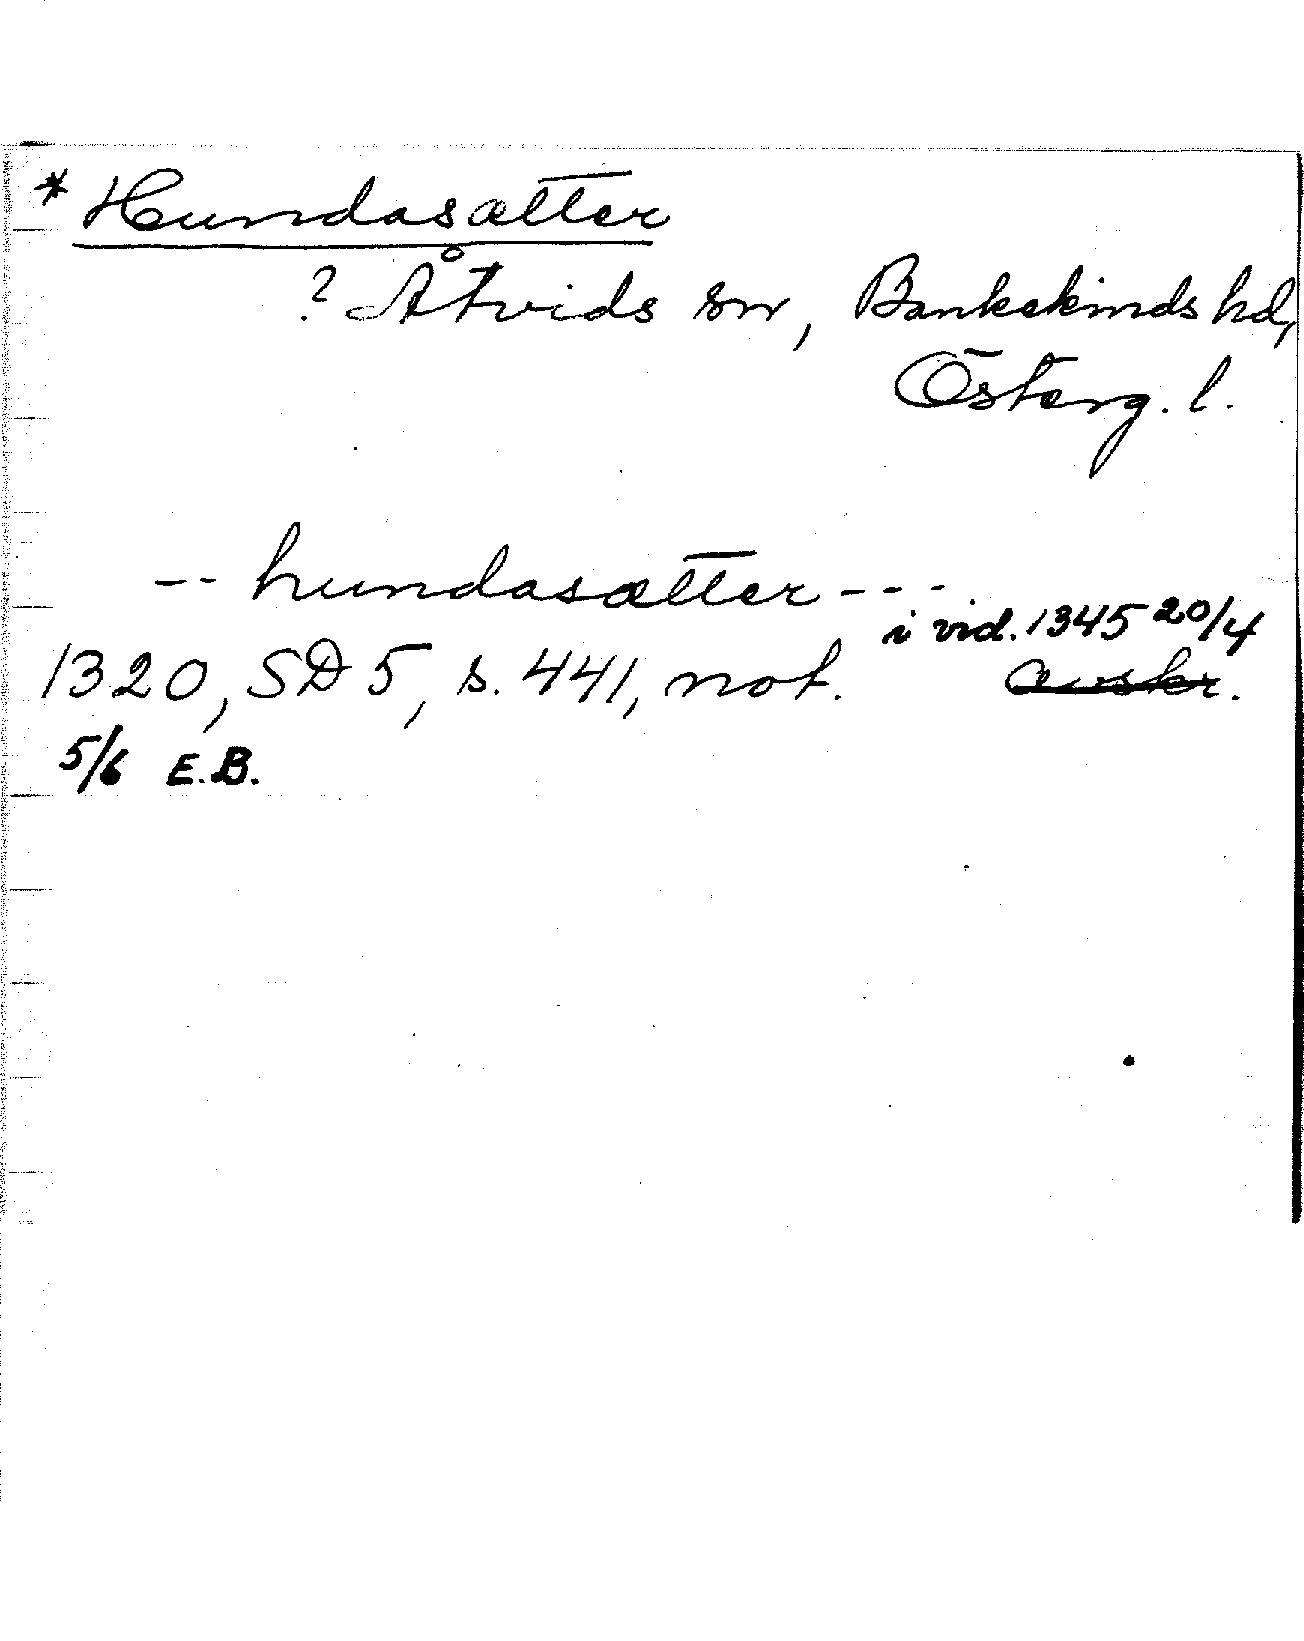 * Hundasætter
? Åtvids sn, Bankekinds hd,
Österg. l.
-- hundasætter ---
i vid. 1345 20/4
1320, SD 5, s. 441, not. avskr.
5/6 E.B.